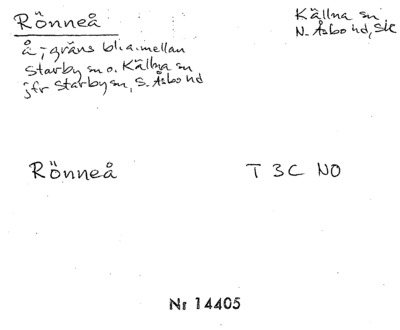 Rönneå
Källna sn
N. Åsbo hd, Sk
å; gräns bl.a. mellan
Starby sn o. Källna sn
jfr Starby sn, S. Åsbo hd
Rönneå T 3C NO
Nr 14405